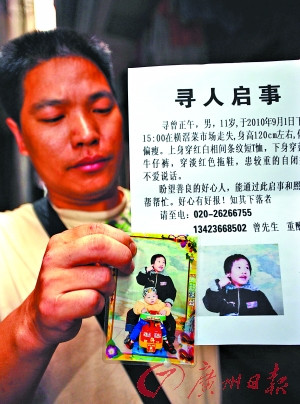 寻人启事
寻曾正午，男，11岁，于2010年9月1日下
15:00在横滘菜市场走失，身高120cm左右，
偏瘦。上身穿红白相间条纹短T恤，下身穿
牛仔裤，穿淡红色拖鞋。患较重的自闭
不爱说话。
盼望善良的好心人，能通过此启事和照
帮帮忙。好心有好报！知其下落者
请至电：020-26266755
13423668502 曾先生 董
广州日报